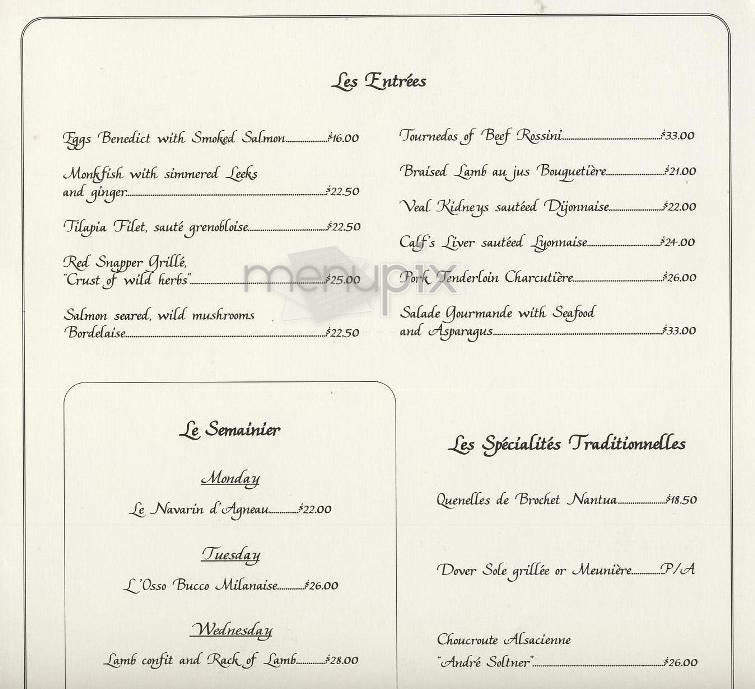 Les Entrées
Eggs Benedict with Smoked Salmon $16.00
Monkfish with simmered Leeks
and ginger $22.50
Tilapia Filet, sauté grenobloise $22.50
Red Snapper Grillé,
"Crust of wild herbs" $25.00
Salmon seared, wild mushrooms
Bordelaise $22.50
Tournedos of Beef Rossini $33.00
Braised Lamb au jus Bouquetière $21.00
Veal Kidneys sautéed Dijonnaise $22.00
Calf's Liver sautéed Lyonnaise $24.00
Pork Tenderloin Charcutière $26.00
Salade Gourmande with Seafood
and Asparagus $33.00
menupix
Le Semainier
Monday
Le Navarin d'Agneau $22.00
Tuesday
L'Osso Bucco Milanaise $26.00
Wednesday
Lamb confit and Rack of Lamb $28.00
Les Spécialités Traditionnelles
Quenelles de Brochet Nantua $18.50
Dover Sole grillée or Meunière P/A
Choucroute Alsacienne
"André Soltner" $26.00